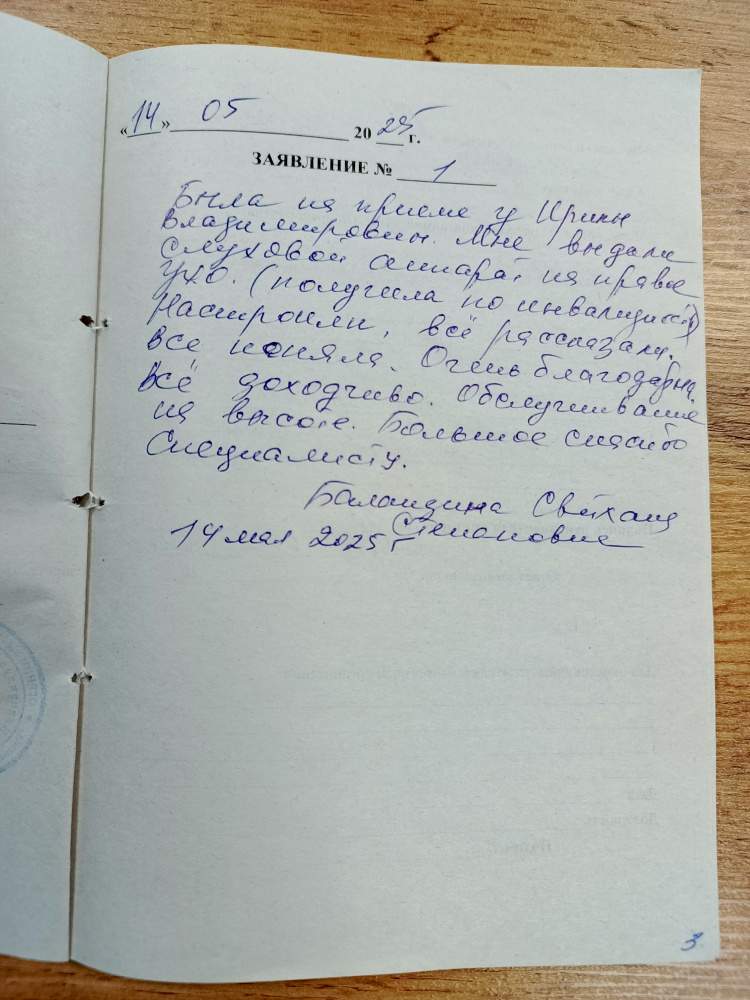 «14» 05 2025 г.
ЗАЯВЛЕНИЕ № 1
Была на приеме у Ирины
Владимировны. Мне выдали
слуховой аппарат на правое
ухо. (получила по инвалидности)
Настроили, всё рассказали.
Все поняла. Очень благодарна.
Всё доходчиво. Обслуживание
на высоте. Большое спасибо
специалисту.
Баландина
Степановна
14 мая 2025 г
3